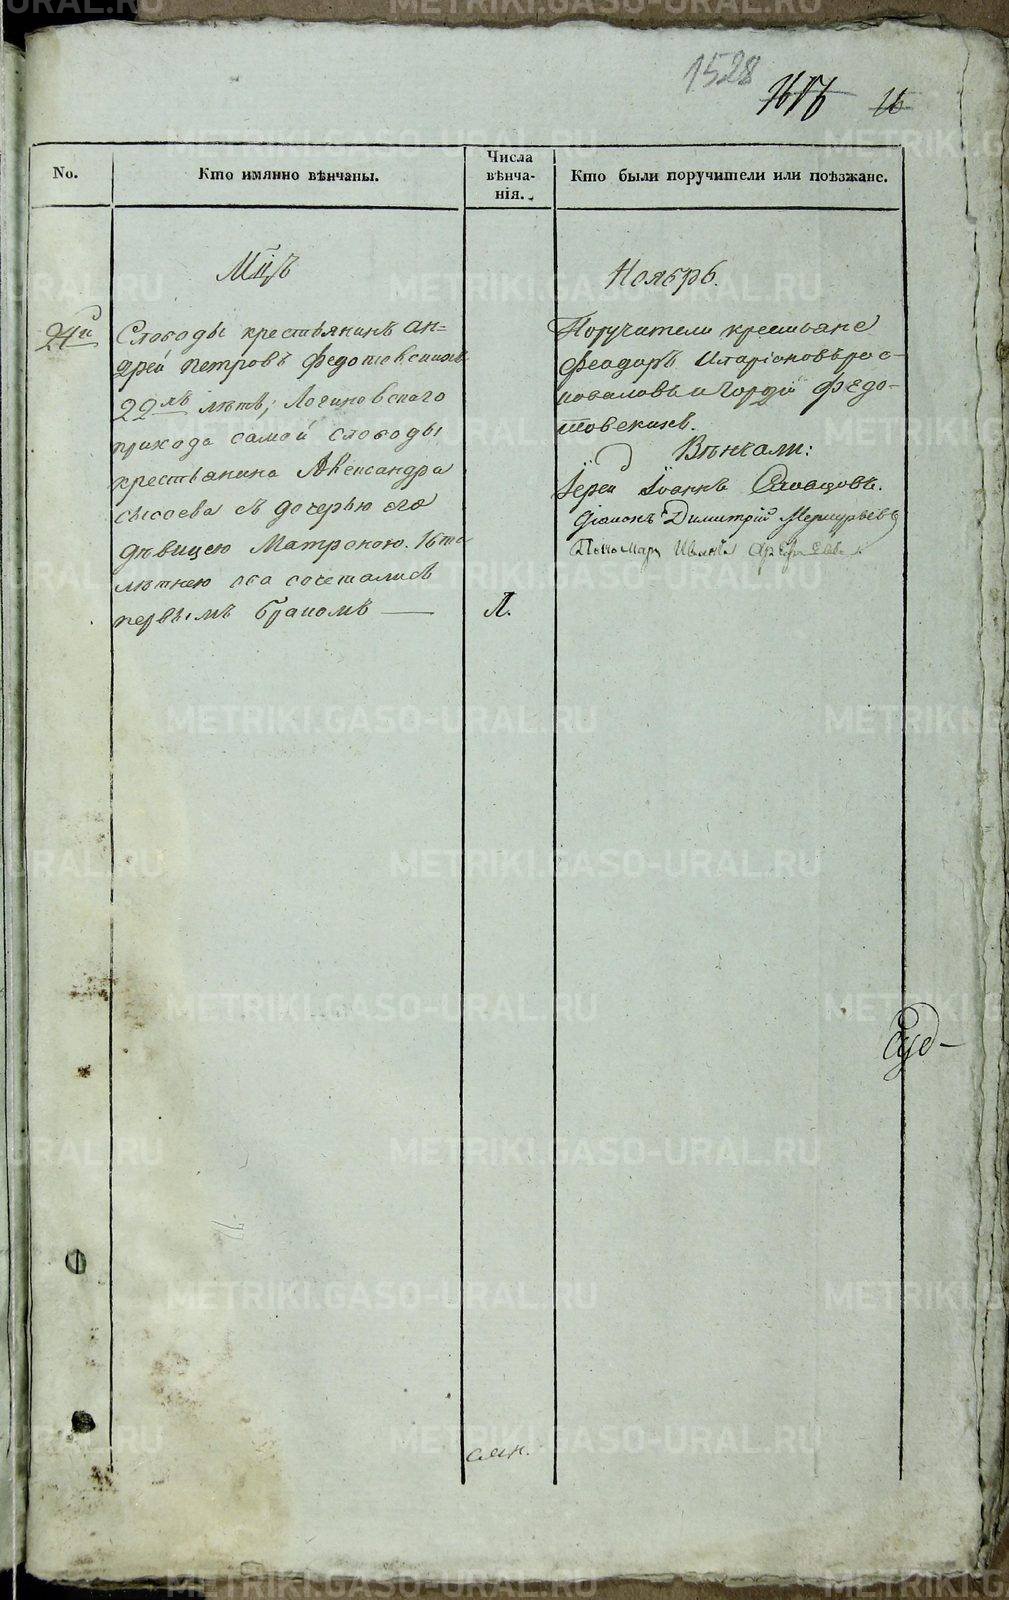 1528
16
No.
Кто имянно вѣнчаны.
Числа
вѣнча-
нія.
Кто были поручители или поѣзжане.
Мцъ
Ноябрь.
24й
Слободы крестьянинъ Ан=
дрей Петровъ Федотовскихъ
22лѣ лѣтъ, Логиновскаго
прихода самой слободы
крестьянина Александра
Сысоева съ дочерью его
дѣвицею Матроною. 16ти
лѣтнею оба сочетались
первымъ бракомъ —
Л.
Поручители крестьяне
Феодоръ Иларіоновъ
и Гордій Федо-
товскихъ.
Вѣнчали:
Іерей Іоаннъ
Діаконъ Димитрій Меркурьевъ
Пономарь
METRIKI.GASO-URAL.RU